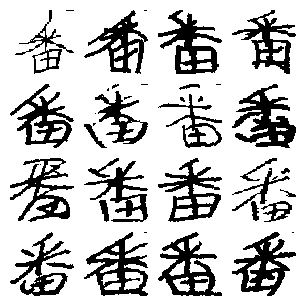 番番番番
番番番番
番番番番
番番番番